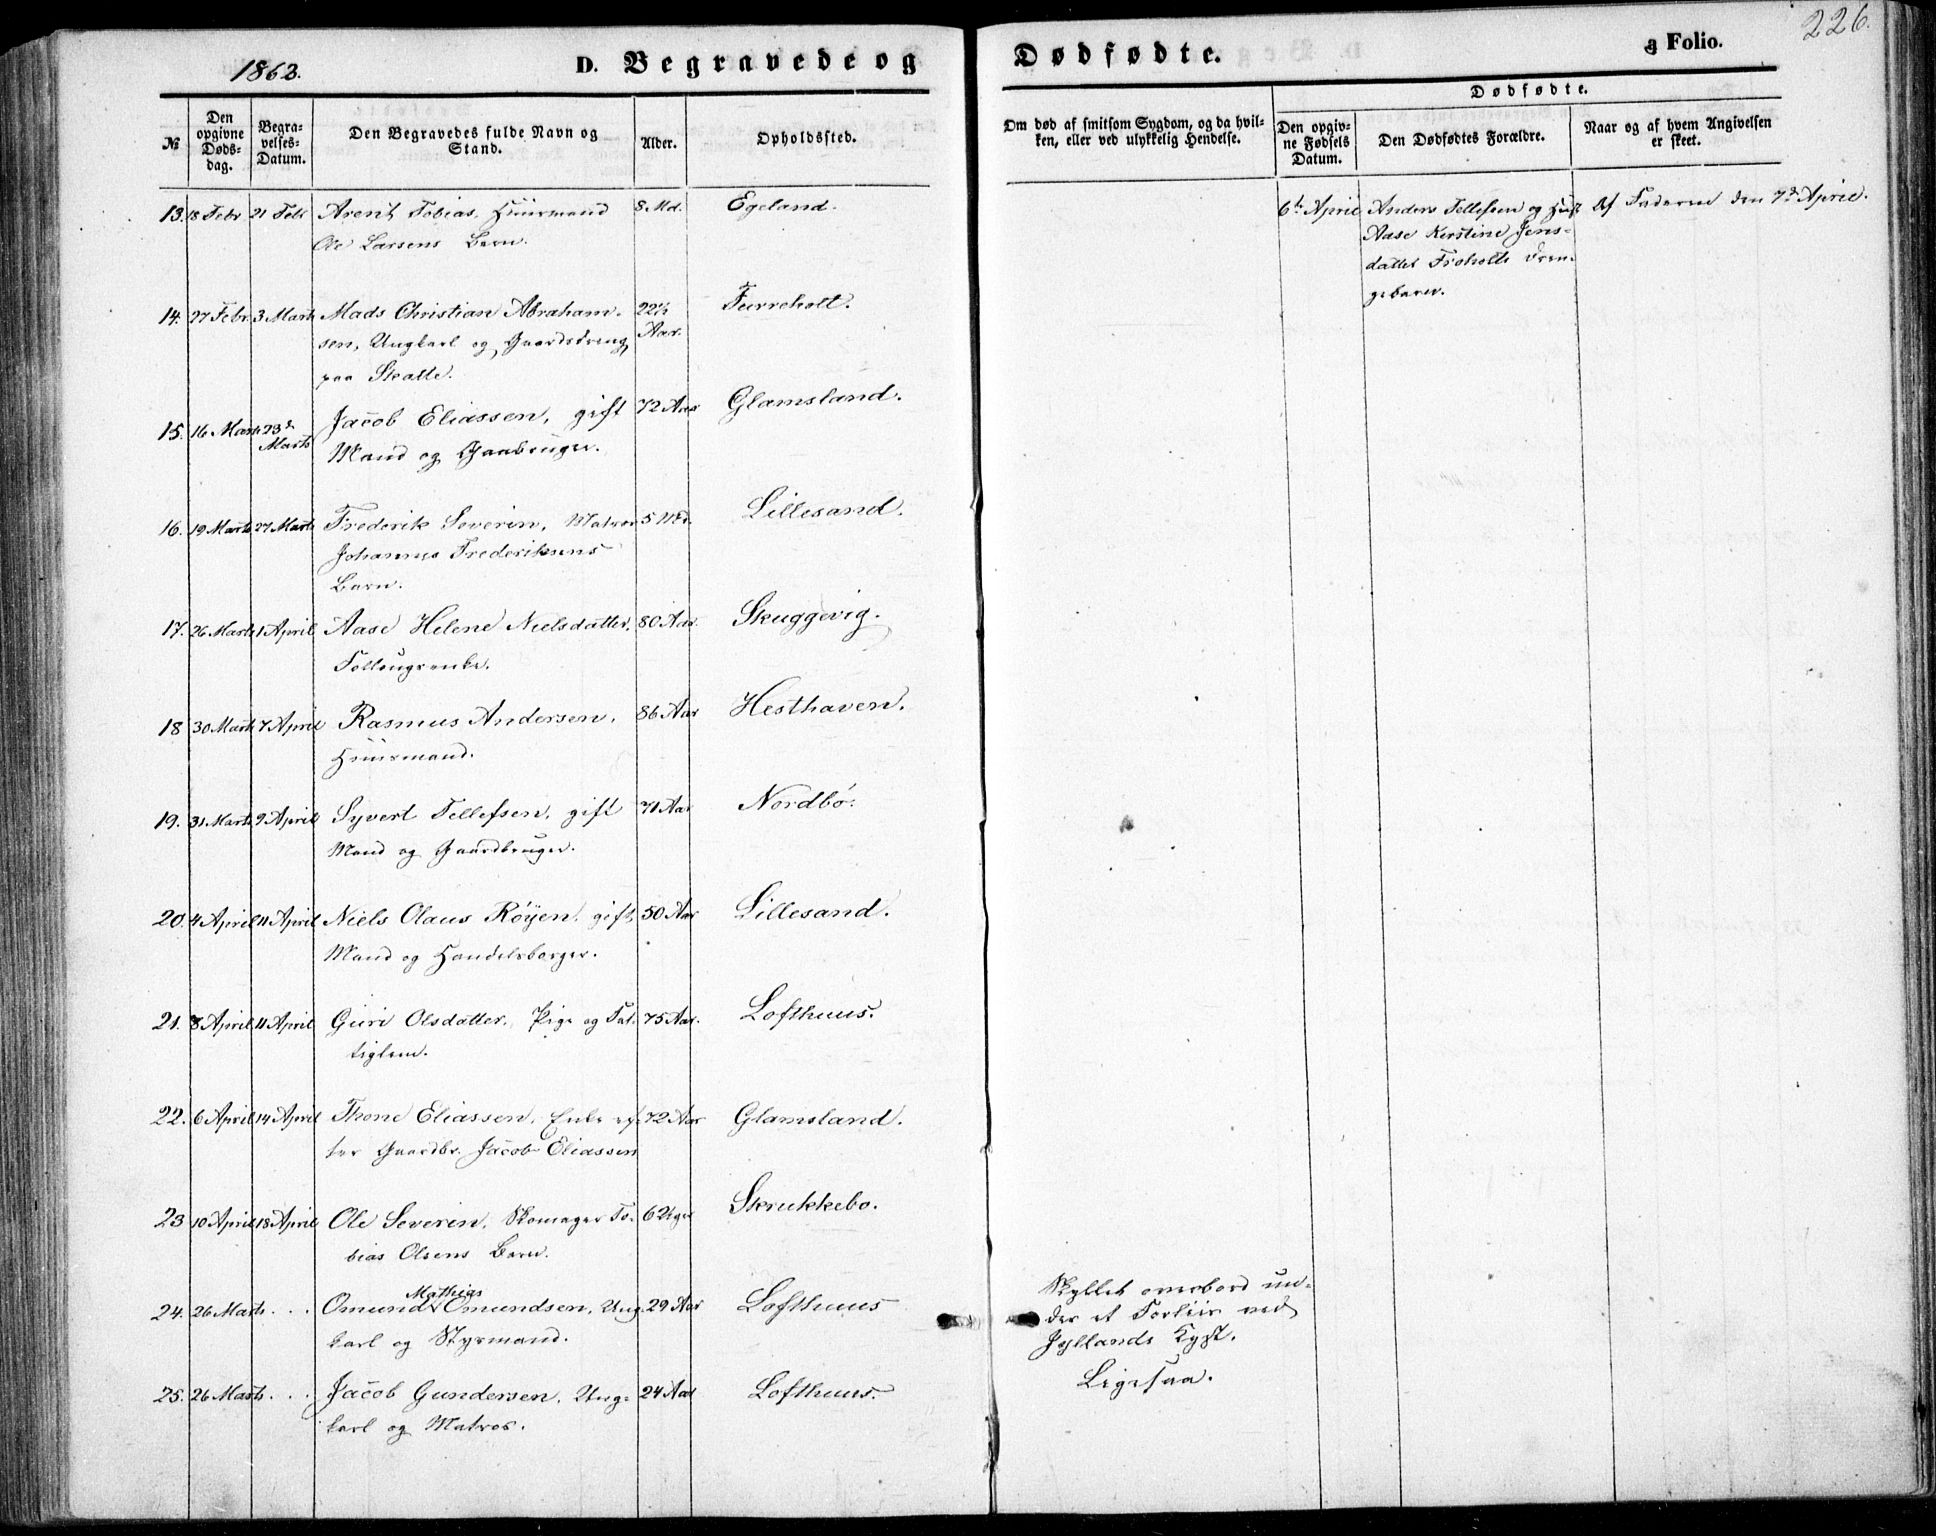 226.
1863.
D. Begravede og Dødfødte.
3 Folio.
№
Den opgivne Døds-dag.
Begra-velses-Datum.
Den Begravedes fulde Navn og Stand.
Alder.
Opholdssted.
Om død af smitsom Sygdom, og da hvil-ken, eller ved ulykkelig Hendelse.
Dødfødte.
Den opgiv-ne Fødsels Datum.
Den Dødfødtes Forældre.
Naar og af hvem Angivelsen er skeet.
13. 18 Febr 21 Febr Arent Tobias, Huusmand 8 Md. Egeland.
Ole Larsens Barn.
6te April Anders Tellefsen og Hust Af Faderen den 7de April.
Aase Kerstine Jens-
datter Froholts Dren-
gebarn.
14. 27 Febr 3 Marts Mads Christian Abraham- 22½ Aar. Furreholt.
sen, Ungkarl og Gaardsdreng
paa Skatte.
15. 16 Marts 23de Marts Jacob Eliassen, gift 72 Aar Glamsland.
Mand og Gaabruger.
16. 19 Marts 27 Marts Frederik Severin, Matros 5 Md. Lillesand.
Johannes Frederiksens
Barn.
17. 26 Marts 1 April Aase Helene Nielsdatter, 80 Aar. Skuggevig.
Follougsenke.
18 30 Marts 7 April Rasmus Andersen, 86 Aar Hesthaven.
Huusmand.
19. 31 Marts 9 April Syvert Tellefsen, gift 71 Aar Nordbø.
Mand og Gaardbruger.
20. 4 April 11 April Niels Olaus Röyen, gift, 50 Aar Lillesand.
Mand og Handelsborger.
21. 8 April 11 April Guri Olsdatter, Pige og Fat- 75 Aar. Lofthuus.
tiglem.
22. 6 April 14 April Thone Eliassen, Enke ef- 72 Aar Glamsland.
ter Gaardbr. Jacob Eliassen
23 10 April 18 April Ole Severin, Skomager To- 6 Uger Skrukkebo.
bias Olsens Barn.
24. 26 Marts . . . Omund Mathias Omundsen, Ung- 29 Aar Lofthuus
karl og Styrmand.
Skyllet overbord un-
der et Forliis ved
Jyllands Kyst.
25. 26 Marts . . . Jacob Gundersen, Ung- 24 Aar Lofthuus.
karl og Matros.
Ligesaa.